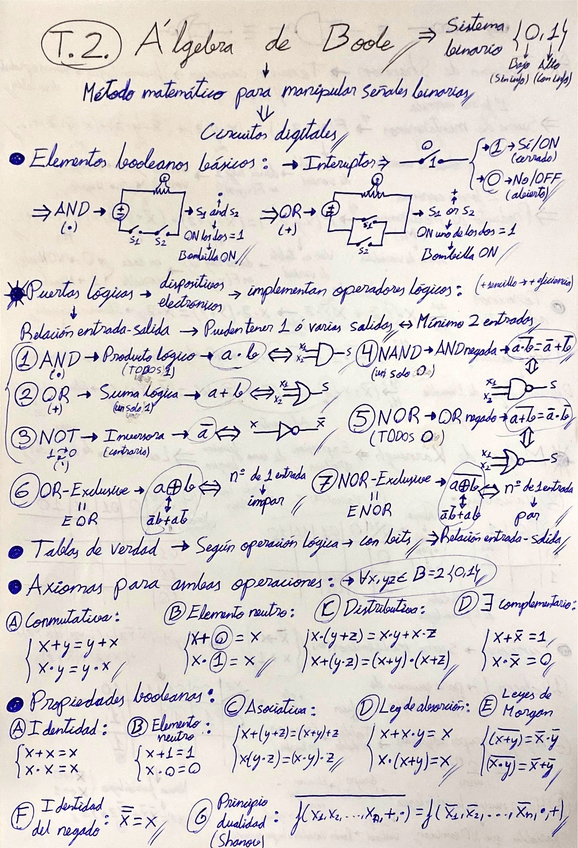 T.2. Álgebra de Boole ⇒ Sistema binario {0,1}
Bajo (Sin info) Alto (Con info)
Método matemático para manipular señales binarias
Circuitos digitales
Elementos booleanos básicos: → Interuptor ⇒ 0 1
1 → Sí/ON (cerrado)
0 → No/OFF (abierto)
⇒ AND (·) → S1 S2 → S1 and S2
ON los dos = 1
Bombilla ON
⇒ OR (+) → S1 S2 → S1 or S2
ON uno de los dos = 1
Bombilla ON
Puertas lógicas → dispositivos electrónicos → implementan operadores lógicos: (+sencillo → + eficiencia)
Relación entrada-salida → Pueden tener 1 ó varias salidas ⇔ Mínimo 2 entradas
1 AND (·) → Producto lógico (TODOS 1) → a·b ⇔ x1 x2 S
2 OR (+) → Suma lógica (un solo 1) → a+b ⇔ x1 x2 S
3 NOT → Inversora (contrario) → a̅ ⇔ x x̅
1⇄0
4 NAND → AND negada → \overline{a·b} = a̅+b̅
(un solo 0) x1 x2 S
5 NOR → OR negado → \overline{a+b} = a̅·b̅
(TODOS 0) x1 x2 S
6 OR-Exclusive → a⊕b ⇔ nº de 1 entrada impar
EOR a̅b+ab̅
7 NOR-Exclusive → \overline{a⊕b} ⇔ nº de 1 entrada par
ENOR
Tablas de verdad → Según operación lógica → con bits ⇒ Relación entrada-salida
Axiomas para ambas operaciones: → ∀x,y,z ∈ B=2{0,1}
A Conmutativa:
x+y=y+x
x·y=y·x
B Elemento neutro:
x+0=x
x·1=x
C Distributiva:
x·(y+z)=x·y+x·z
x+(y·z)=(x+y)·(x+z)
D ∃ complementario:
x+x̅=1
x·x̅=0
Propiedades booleanas:
A Identidad:
x+x=x
x·x=x
B Elemento neutro:
x+1=1
x·0=0
C Asociativa:
x+(y+z)=(x+y)+z
x(y·z)=(x·y)·z
D Ley de absorción:
x+x·y=x
x·(x+y)=x
E Leyes de Morgan
\overline{(x+y)}=x̅·y̅
\overline{(x·y)}=x̅+y̅
F Identidad del negado: x̿=x
G Principio dualidad (Shanon): \overline{f(x1,x2,...,xn,+,·)}=f(x̅1,x̅2,...,x̅n,·,+)